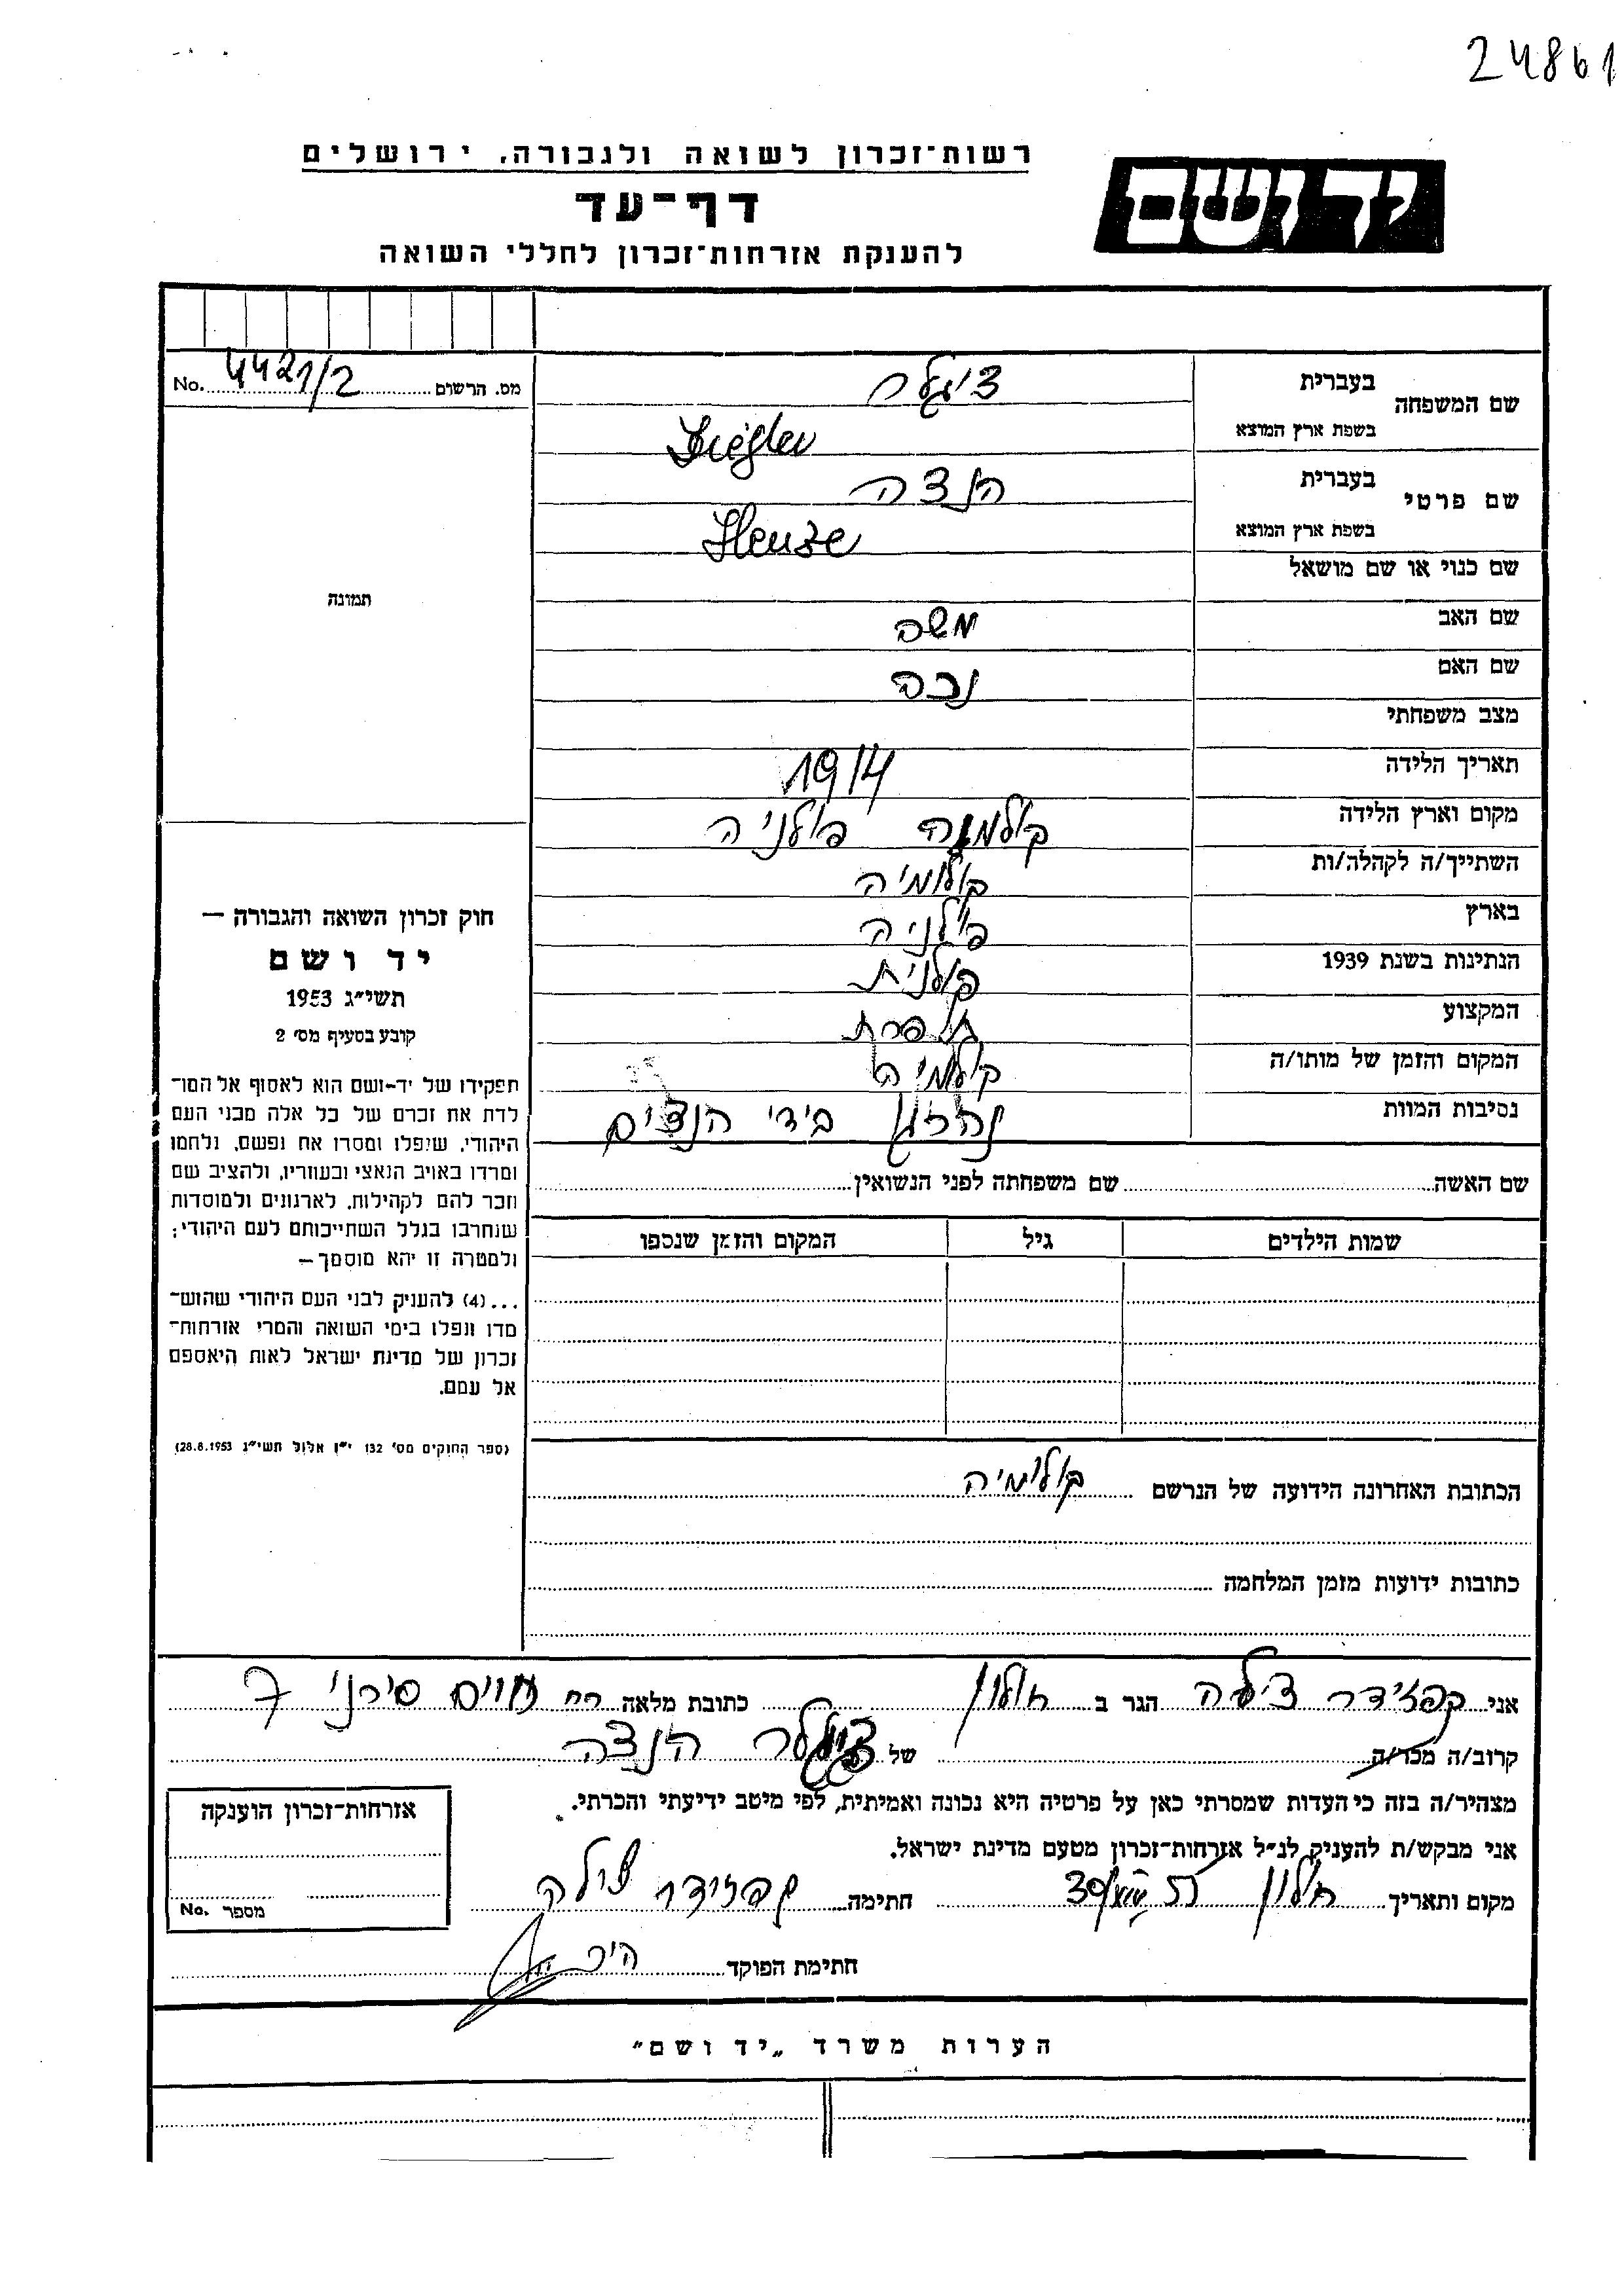 24861
רשות־זכרון לשואה ולגבורה, ירושלים
יד ושם
דף־עד
להענקת אזרחות־זכרון לחללי השואה
מס. הרשום 4421/2 No.
שם המשפחה בעברית ציגלר
בשפת ארץ המוצא Ziegler
שם פרטי בעברית הנצה
בשפת ארץ המוצא Henze
שם כנוי או שם מושאל
תמונה
שם האב משה
שם האם
מצב משפחתי
תאריך הלידה 1914
מקום וארץ הלידה פולניה
השתייך/ה לקהלה/ות קולומיה
בארץ פולניה
הנתינות בשנת 1939 פולנית
המקצוע תופרת
המקום והזמן של מותו/ה קולומיה
נסיבות המוות בידי הנצים
חוק זכרון השואה והגבורה —
יד ושם
תשי״ג 1953
קובע בסעיף מס׳ 2
תפקידו של יד-ושם הוא לאסוף אל המו־
לדת את זכרם של כל אלה מבני העם
היהודי, שנפלו ומסרו את נפשם, נלחמו
ומרדו באויב הנאצי ובעוזריו, ולהציב שם
וזכר להם לקהילות, לארגונים ולמוסדות
שנחרבו בגלל השתייכותם לעם היהודי;
ולמטרה זו יהא מוסמך —
...(4) להעניק לבני העם היהודי שהוש־
מדו ונפלו בימי השואה והמרי אזרחות־
זכרון של מדינת ישראל לאות היאספם
אל עמם.
(ספר החוקים מס׳ 132 י״ז אלול תשי״ג 28.8.1953)
שם האשה שם משפחתה לפני הנשואין
שמות הילדים גיל המקום והזמן שנספו
הכתובת האחרונה הידועה של הנרשם קולומיה
כתובות ידועות מזמן המלחמה
אני צילה הגר ב חולון כתובת מלאה רח חיים סירני 7
קרוב/ה מכר/ה של ציגלר הנצה
מצהיר/ה בזה כי העדות שמסרתי כאן על פרטיה היא נכונה ואמיתית, לפי מיטב ידיעתי והכרתי.
אני מבקש/ת להעניק לנ״ל אזרחות־זכרון מטעם מדינת ישראל.
מקום ותאריך חולון חתימה צילה
חתימת הפוקד
אזרחות־זכרון הוענקה
מספר No.
הערות משרד „יד ושם״